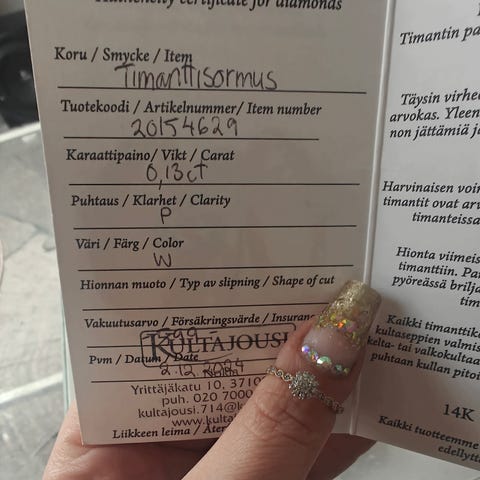 Authenticity certificate for diamonds
Koru / Smycke / Item
Timanttisormus
Tuotekoodi / Artikelnummer/ Item number
20154629
Karaattipaino/ Vikt / Carat
0,13ct
Puhtaus / Klarhet / Clarity
P
Väri / Färg / Color
W
Hionnan muoto / Typ av slipning / Shape of cut
Vakuutusarvo / Försäkringsvärde / Insuranc
KULTAJOUSI
Pvm / Datum / Date
2.12.2024
Yrittäjäkatu 10, 3710
puh. 020 7000
kultajousi.714@k
www.kulta
Liikkeen leima / Åter
Timantin pa
Täysin virhee
arvokas. Yleen
non jättämiä ja
Harvinaisen voi
timantit ovat arv
timanteissa
Hionta viimeis
timanttiin. Pa
pyöreässä brilja
tim
Kaikki timanttik
kultaseppien valmis
kelta- tai valkokultaa
puhtaan kullan pitoi
14K
Kaikki tuotteemme
edellytt